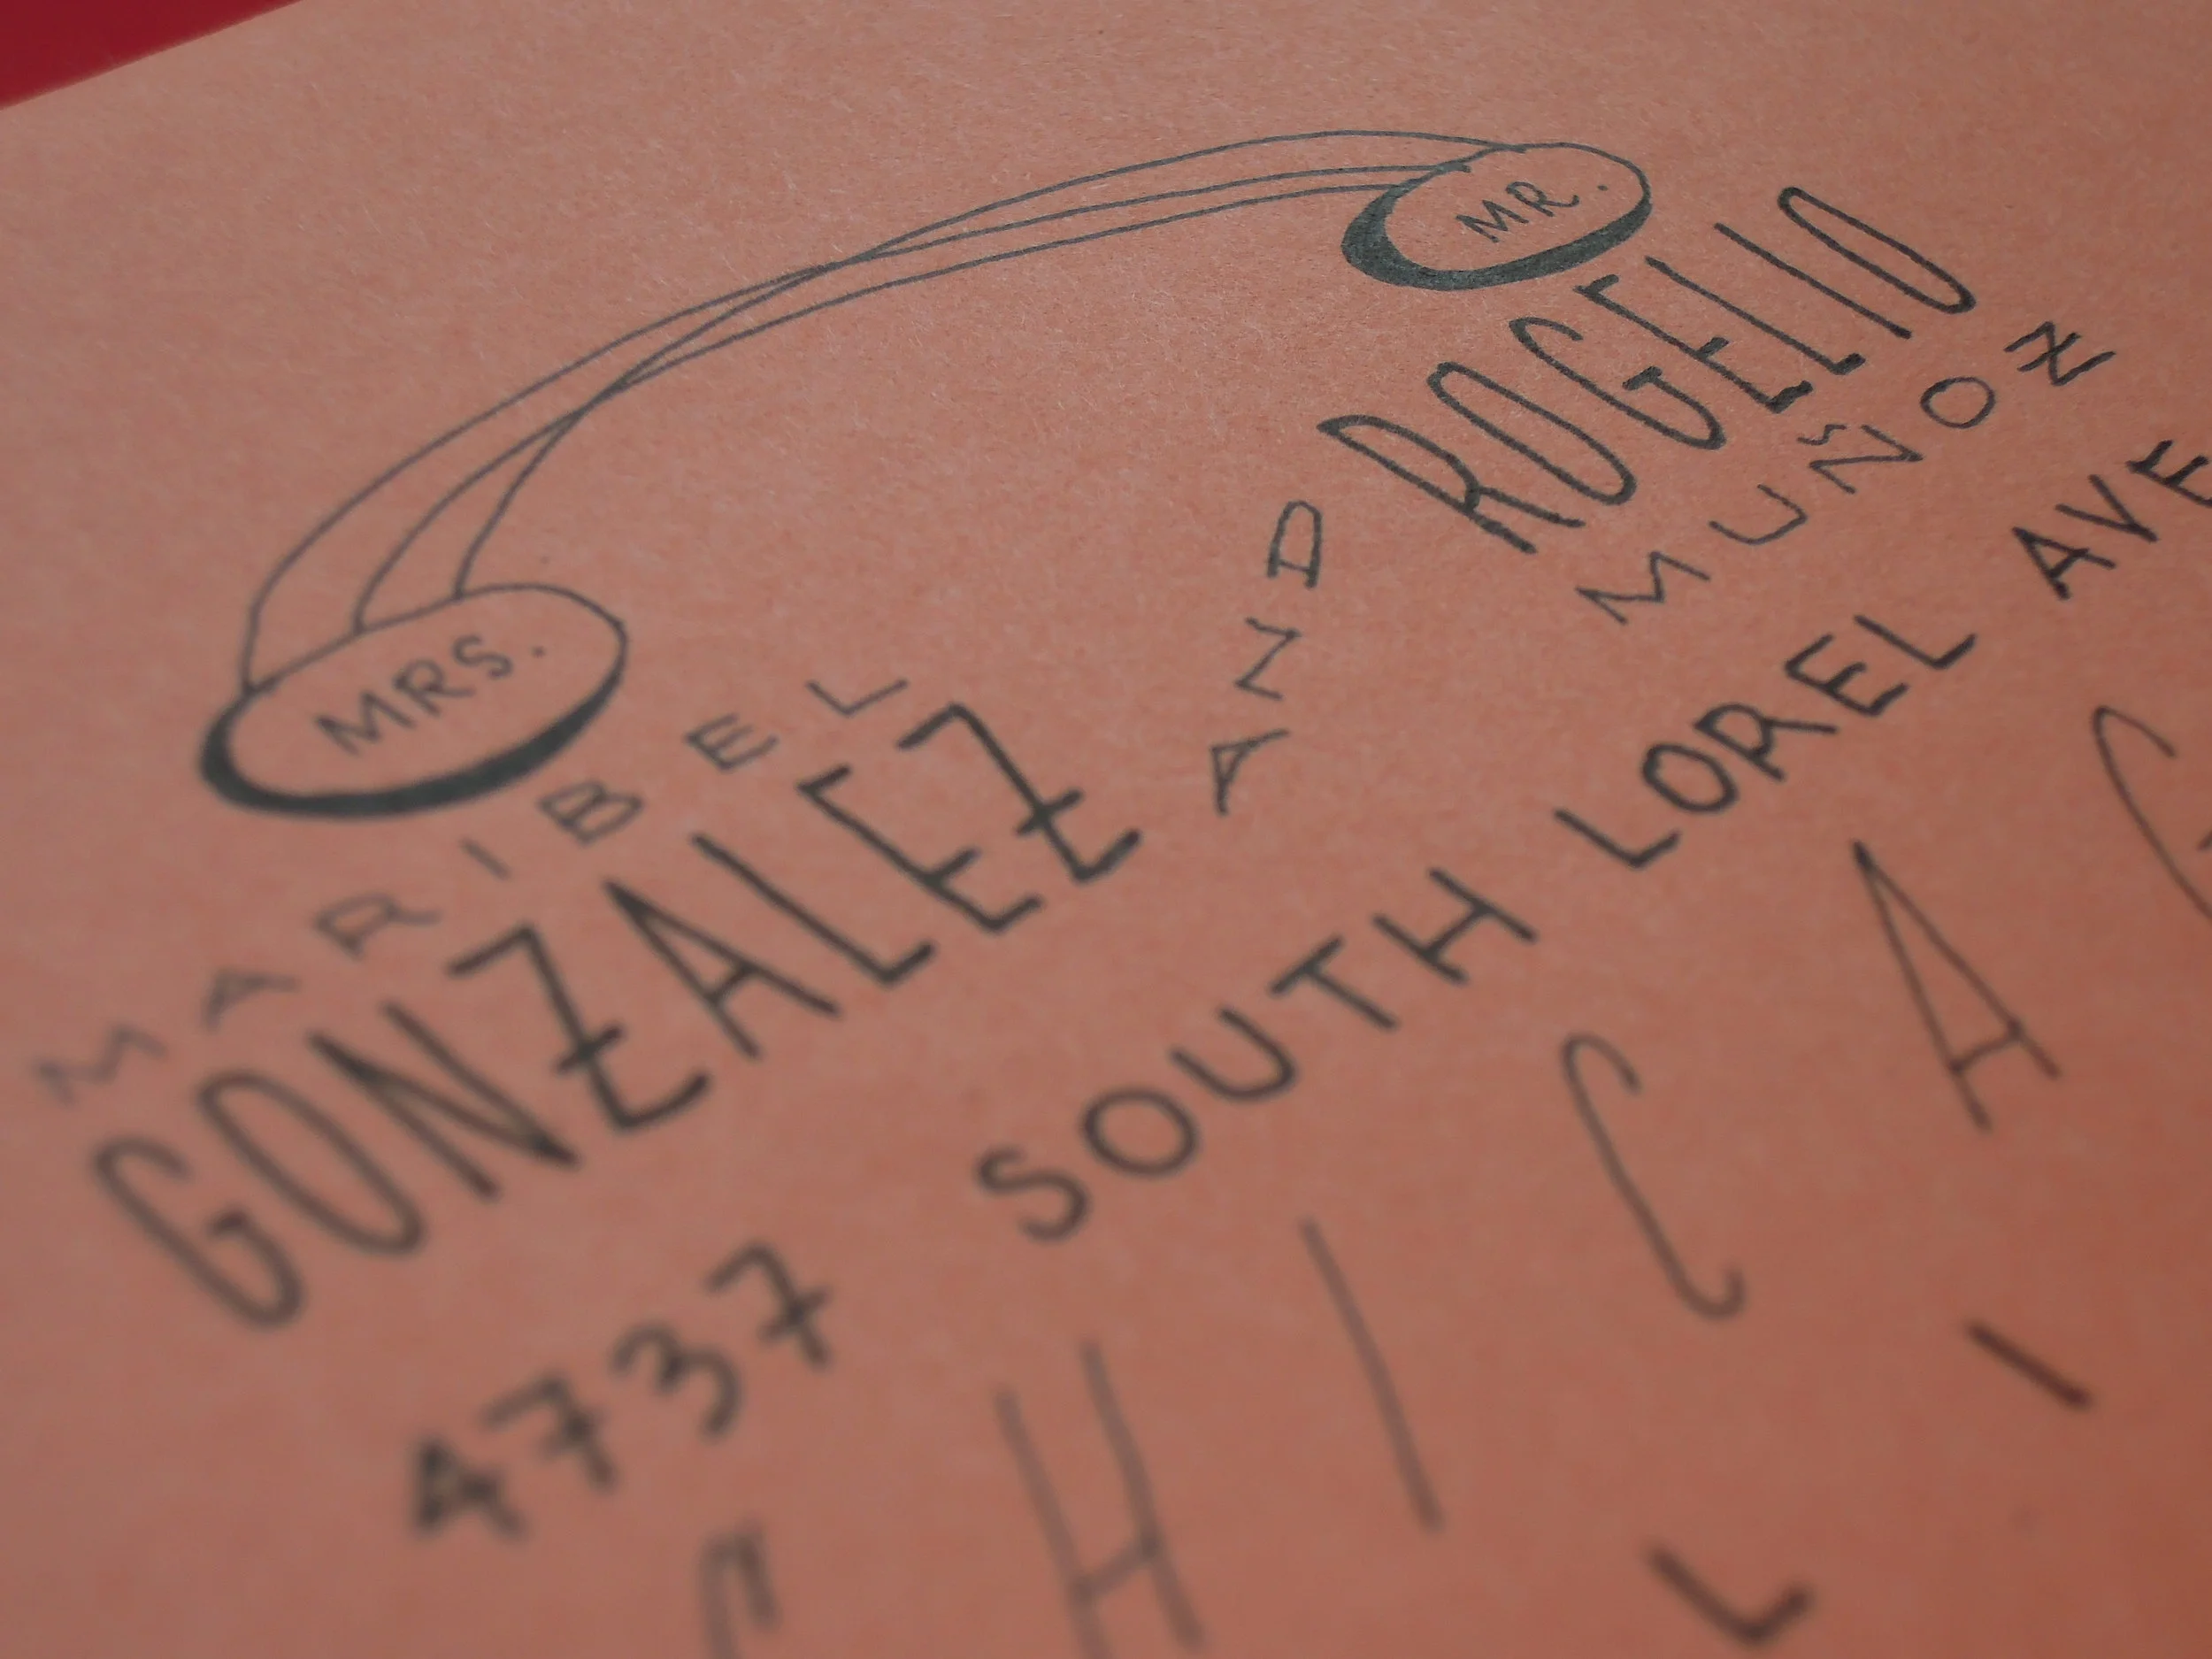 MRS. MR.
MARIBEL
GONZALEZ AND ROGELIO
MUÑOZ
4737 SOUTH LOREL AVE
CHICAG
L I